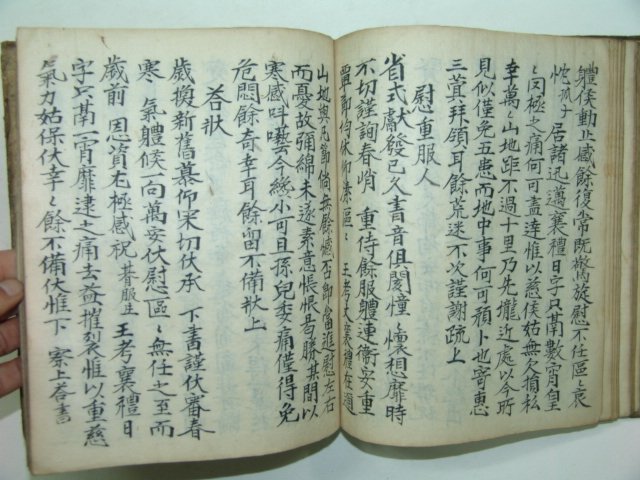 體候動止感餘復常旣慰旋慰不任區〻哀
忱孤子居諸迅邁襄禮日字只隔數宵皇
〻罔極之痛何可盡達惟以慈候姑無欠損私
幸萬〻山地距不過十里乃先壠近處以今所
見似僅免五患而地中事何可預卜也寄惠
三蓂拜領耳餘荒迷不次謹謝疏上
慰重服人
省式獻發已久書音俱閡憧〻懷想靡時
不切謹詢春峭重侍餘服體連衛安重
區〻王考大襄禮在邇
山地與凡節倘無餘憾否卽當進慰左右
而憂故彌綿未遂素意悵恨曷勝其間以
寒感叫囈今纔小可且孫兒委痛僅得免
危悶餘奇幸耳餘留不備狀上
答狀
歲換新舊慕仰采切伏承下書謹伏審春
寒氣體候一向萬安伏慰區〻無任之至而
歲前恩資尤極感祝朞服生王考襄禮日
字只隔一宵靡逮之痛去益摧裂惟以重慈
氣力姑保伏幸〻餘不備伏惟下察上答書